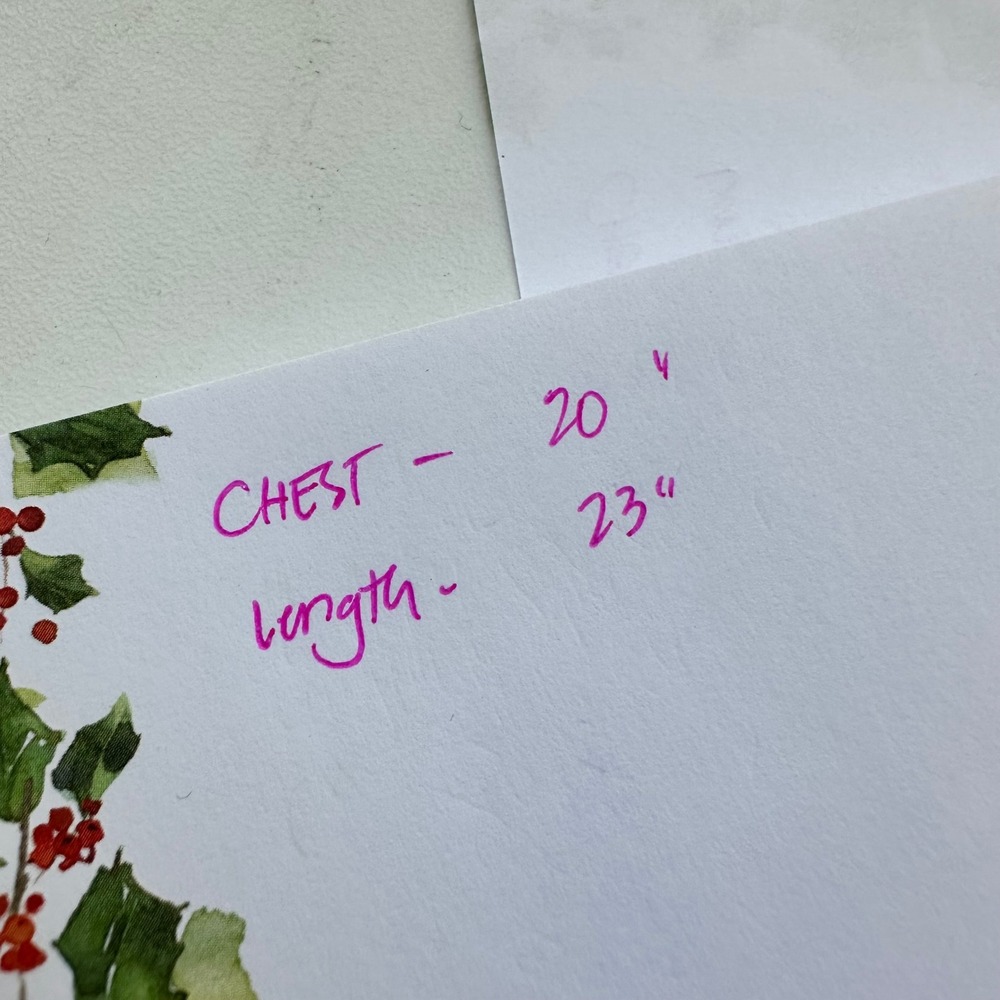 CHEST - 20"
Length - 23"